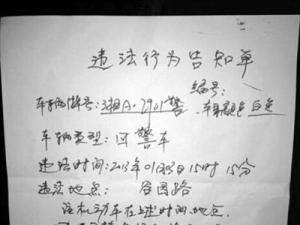 违法行为告知单
编号:
车辆牌号:湘A·2901警 车身颜色 白色
车辆类型: 警车
违法时间:2013年01月03日15时15分
违法地点: 学园路
该机动车在上述时间、地点,